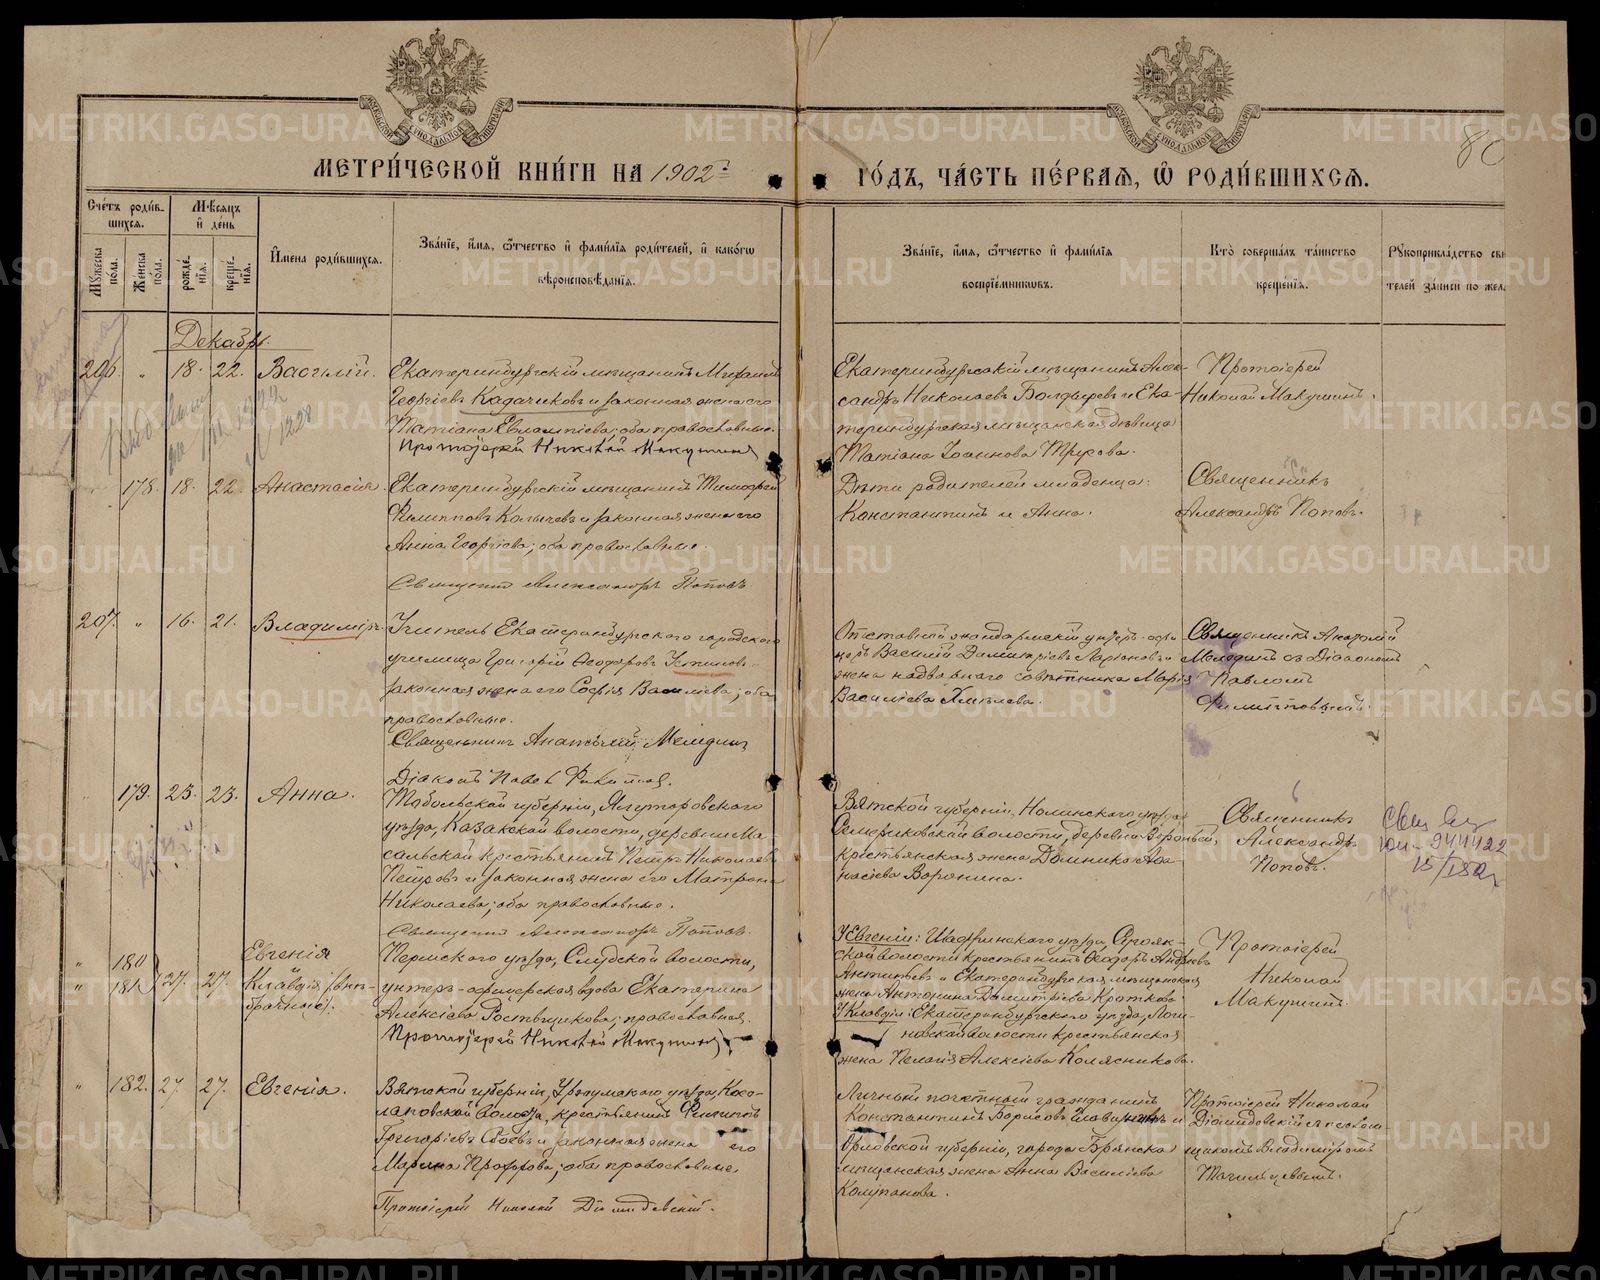 МЕТРИ́ЧЕСКОЙ КНИ́ГИ НА 1902 й
ГО́ДЪ, ЧА́СТЬ ПЕ́РВАѦ, Ѡ҆ РОДИ́ВШИХСѦ.
80
Сче́тъ роди́в-
шихсѧ.
Мѣ́сѧцъ
и҆ де́нь
Мꙋ́жеска по́ла.
Же́нска по́ла.
рожде́нїѧ.
креще́нїѧ.
И҆мена роди́вшихсѧ.
Зва́нїе, и҆́мѧ, ѻ҆́тчество и҆ фами́лїѧ роди́телей, и҆ како́гѡ
вѣроисповѣ́данїѧ.
Зва́нїе, и҆́мѧ, ѻ҆́тчество и҆ фами́лїѧ
воспрїе́мникѡвъ.
Кто̀ соверша́лъ та́инство
креще́нїѧ.
Рꙋкоприкла́дство сви
тѣлей за́писи по жел
Декабрь.
206. " 18. 22. Василій.
Екатеринбургскій мѣщанинъ Михаилъ
Георгіевъ Кадочиковъ и законная жена его
Татіана Евлампіева; оба православные.
Протоіерей Николай Макушинъ
Екатеринбургскій мѣщанинъ Алек-
сандръ Николаевъ Болдыревъ и Ека-
теринбургская мѣщанская дѣвица
Татіана Іоаннова
Протоіерей
Николай Макушинъ.
178. 18. 22. Анастасія.
Екатеринбургскій мѣщанинъ Тимофей
Филипповъ Копычевъ и законная жена его
Анна Георгіева; оба православные.
Священникъ Александръ Поповъ
Дѣти родителей младенца:
Константинъ и Анна.
Священникъ
Александръ Поповъ.
207. " 16. 21. Владиміръ.
Учитель Екатеринбургскаго городского
училища Григорій Ѳеодоровъ Устиновъ и
законная жена его Софія Васильева; оба
православные.
Священникъ Анатолій Мелединъ
Діаконъ Павел
Отставной жандармскій унтеръ-офи-
церъ Василій Димитріевъ Ларіоновъ и
жена надворнаго совѣтника Марія
Васильева Хмѣлева.
Священникъ Анатолій
Мелединъ съ Діакономъ
Павломъ
179. 23. 23. Анна.
Тобольской губерніи, Ялуторовскаго
уѣзда, Казакской волости, деревни Ма-
сальской крестьянинъ Петръ Николаевъ
Петровъ и законная жена его Матрона
Николаева; оба православные.
Священникъ Александръ Поповъ.
Вятской губерніи, Нолинскаго уѣзда
волости, деревни
крестьянская жена Домника Аѳа-
насіева Воронина.
Священникъ
Александръ
Поповъ.
944422
" 180 Евгенія
" 181 27. 27. Клавдія (внѣ-
брачныя).
Пермскаго уѣзда, Слудской волости,
унтеръ-офицерская вдова Екатерина
Алексіева Ростовщикова; православная.
Протоіерей Николай Макушинъ
У Евгеніи: Шадринскаго уѣзда,
ской волости крестьянинъ Ѳеодоръ Андреевъ
Антипьевъ и Екатеринбургская мѣщанская
жена Антонина Димитріева
У Клавдіи: Екатеринбургскаго уѣзда, Логи-
новской волости крестьянская
жена Пелагія Алексіева Колясникова.
Протоіерей
Николай
Макушинъ.
" 182. 27. 27. Евгенія.
Вятской губерніи, Уржумскаго уѣзда, Косо-
лаповской волости, крестьянинъ Филиппъ
Григоріевъ и законная жена его
Марина Прохорова; оба православные.
Протоіерей Николай Діомидовскій.
Личный почетный гражданинъ
Константинъ Борисовъ и
Орловской губерніи, города Брянска
мѣщанская жена Анна Васильева
Колупанова.
Протоіерей Николай
Діомидовскій съ псалом-
щикомъ Владиміромъ
METRIKI.GASO-URAL.RU